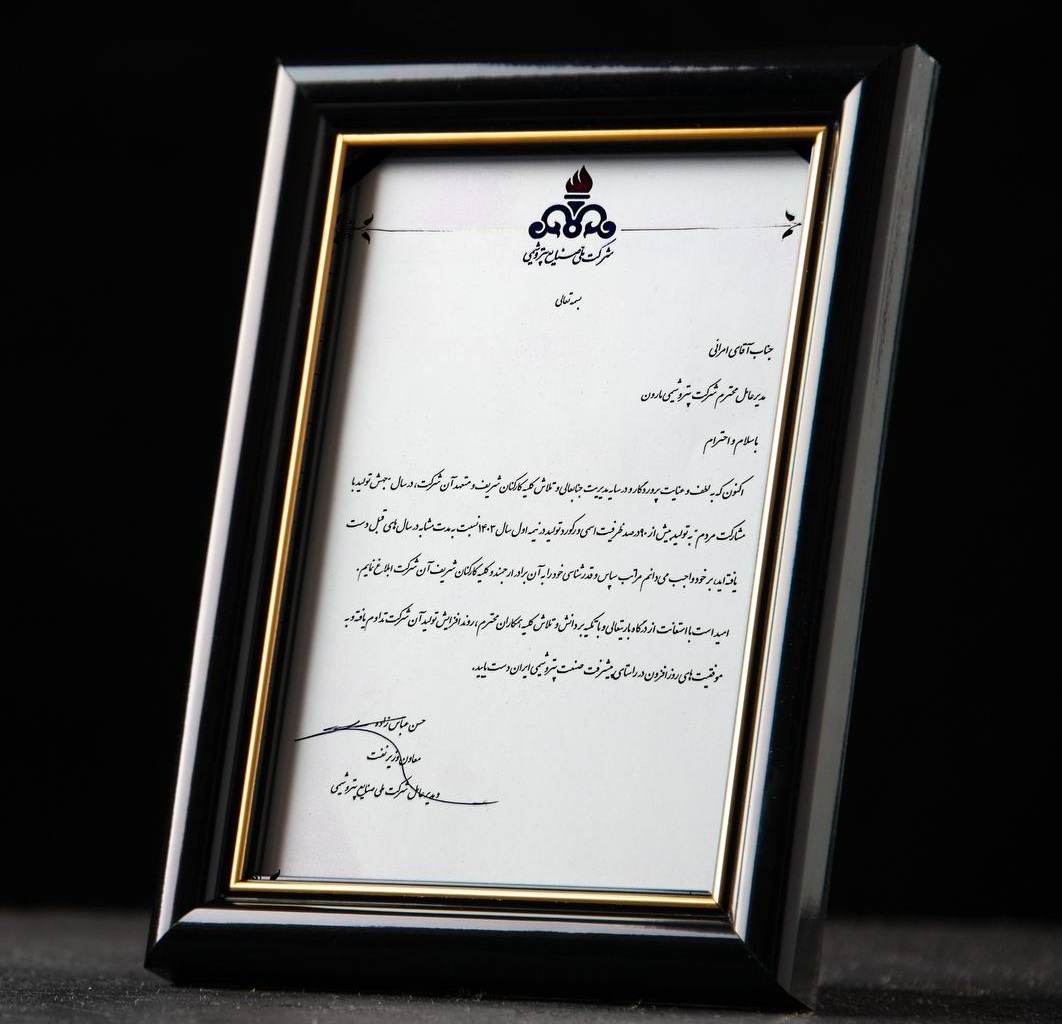 شرکت ملی صنایع پتروشیمی
بسمه تعالی
جناب آقای امرائی
مدیرعامل محترم شرکت پتروشیمی مارون
با سلام و احترام
اکنون که به لطف و عنایت پروردگار و در سایه مدیریت جنابعالی و تلاش کلیه کارکنان شریف و متعهد آن شرکت، در سال "جهش تولید با
مشارکت مردم" به تولید بیش از ۹۰ درصد ظرفیت اسمی و رکورد تولید در نیمه اول سال ۱۴۰۳ نسبت به مدت مشابه در سال های قبل دست
یافته اید، بر خود واجب می دانم مراتب سپاس و قدرشناسی خود را به آن برادر ارجمند و کلیه کارکنان شریف آن شرکت ابلاغ نمایم.
امید است با استعانت از درگاه باریتعالی و با تکیه بر دانش و تلاش کلیه همکاران محترم، روند افزایش تولید آن شرکت تداوم یافته و به
موفقیت های روزافزون در راستای پیشرفت صنعت پتروشیمی ایران دست یابید.
حسن عباس زاده
معاون وزیر نفت
و مدیرعامل شرکت ملی صنایع پتروشیمی